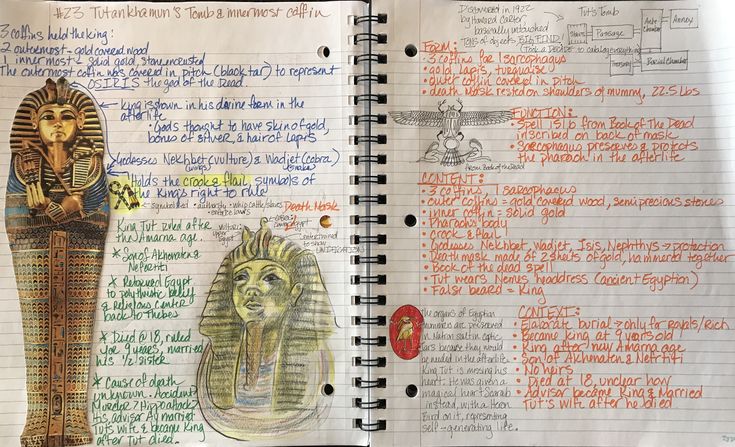 #23 Tutankhamun's Tomb & innermost coffin
3 coffins held the king:
2 outermost - gold covered wood
1 innermost - solid gold, stone encrusted
The outermost coffin was covered in Pitch (black tar) to represent
OSIRIS the god of the Dead.
King is shown in his divine form in the
afterlife
• Gods thought to have skin of gold,
bones of silver, & hair of lapis
Godesses Nekhbet (vulture) & Wadjet (cobra)
Holds the crook & flail, symbols of
the King's right to rule
Death Mask
King Tut ruled after
the Amarna age.
* Son of Akhenaten &
Nefrtiti
* Returned Egypt
to polytheistic beliefs
& Religious Center
back to Thebes
* Died @ 18, ruled
for 9 years, married
his 1/2 sister
* Cause of death
unknown. Accident?
Murder? Hippo attack?
His advisor Ay married
Tut's wife & became King
after Tut died.
Discovered in 1922
by Howard Carter,
basically untouched
Tons of objects BIG FIND!
(Took a Decade to catalog everything)
Tut's Tomb
Stairs
Passage
Ante-
chamber
Annex
Treasury
Burial Chamber
FORM:
• 3 coffins for 1 sarcophagus
• gold, lapis, turquoise
• outer coffin covered in Pitch
• death mask rested on shoulders of mummy, 22.5 lbs
FUNCTION:
• Spell 151b from Book of The Dead
inscribed on back of mask
• Sarcophagus preserves & protects
the pharaoh in the afterlife
from Book of the Dead
CONTENT:
• 3 coffins, 1 sarcophagus
• outer coffins = gold covered wood, semi precious stones
• inner coffin = solid gold
• Pharaoh's body
• crook & flail
• Godesses Nekhbet, Wadjet, Isis, Nephthys → protection
• Death mask made of 2 sheets of gold, hammered together
• Book of the dead spell
• Tut wears Nemes headdress (ancient Egyptian)
• False beard = King
CONTEXT:
• Elaborate burial → only for Royals/Rich
• Became king at 9 years old
• King after new Amarna age
• Son of Akhenaten & Nefrtiti
• No heirs
• Died at 18, unclear how
• Advisor became King & Married
Tut's wife after he died
The organs of Egyptian
mummies are preserved
in Natron salt in Coptic
Jars because they would
be needed in the afterlife.
King Tut is missing his
heart. He was given a
magical heart Scarab
instead, with a Heron
Bird on it, representing
self-generating life.